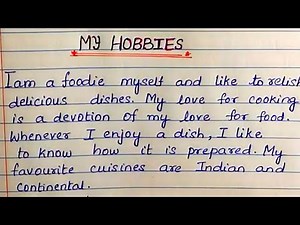 MY HOBBIES
I am a foodie myself and like to relish
delicious dishes. My love for cooking
is a devotion of my love for food.
Whenever I enjoy a dish, I like
to know how it is prepared. My
favourite cuisines are Indian and
continental.